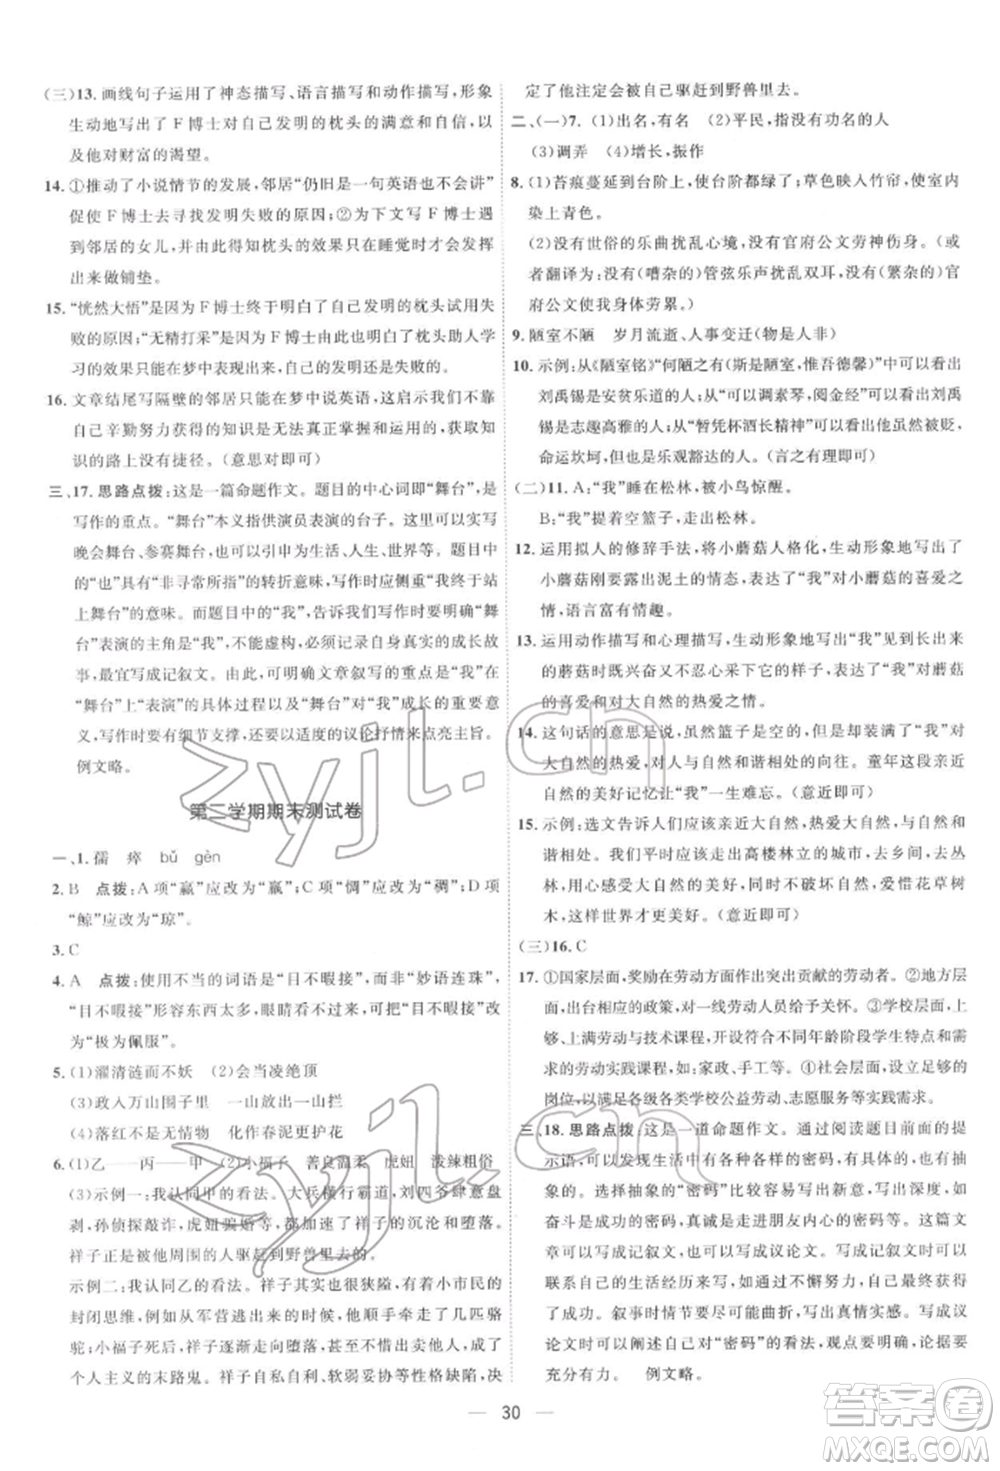 (三)13. 画线句子运用了神态描写、语言描写和动作描写,形象
生动地写出了F博士对自己发明的枕头的满意和自信,以
及他对财富的渴望。
14. ①推动了小说情节的发展,邻居“仍旧是一句英语也不会讲”
促使F博士去寻找发明失败的原因;②为下文写F博士遇
到邻居的女儿,并由此得知枕头的效果只在睡觉时才发挥
出来做铺垫。
15. “恍然大悟”是因为F博士终于明白了自己发明的枕头试用失
败的原因;“无精打采”是因为F博士明白了枕头助人学
习的效果只在梦中体现,自己的发明还是失败的。
16. 文章结尾写隔壁的邻居只能在梦中说英语,这启示我们不靠
自己辛勤努力获得的知识是无法真正掌握和运用的,获取知
识的路上没有捷径。(意思对即可)
三、17. 思路点拨:这是一篇命题作文。题目的中心词即“舞台”,是
写作的重点。“舞台”本义指供演员表演的台子。这里可以写
晚会舞台、参赛舞台,也可以引申为生活、人生、世界。题目中
的“也”具有“非寻常所指”的转折意味,写作时应侧重“我终于站
上舞台”的意味。而题目中的“我”,告诉我们写作时应写出“舞
台”表演的主角是“我”,不能虚构,必须试着写自己的成长故
事,最宜写成记叙文。题目也明确了文章叙写的重点是“我”在
“舞台”上“表演”的过程。为了写出“舞台”对“我”成长的重要意
义,写作时要有细节支撑,以及适度的议论抒情来点亮主旨。
例文略。
第二学期期末测试卷
一、1. 孺 瘁 bǔ gèn
2. B 点拨:A项“赢”应改为“嬴”;C项“惆”应改为“稠”;D项
“鲸”应改为“琼”。
3. C
4. A 点拨:使用不当的词语是“目不暇接”,而非“妙语连珠”,
“目不暇接”形容东西太多,眼睛看不过来,可把“目不暇接”
改为“极为佩服”。
5. (1)濯清涟而不妖 (2)会当凌绝顶
(3)政入万山围子里 一山放出一山拦
(4)落红不是无情物 化作春泥更护花
6. (1)乙——丙——甲 (2)小福子 善良温柔 虎妞 泼辣粗俗
(3)示例一:我认同甲的看法。大兵横行霸道,刘四爷肆意盘
剥,孙侦探敲诈,虎妞骗婚等,导致了祥子的沉沦和堕落。
祥子正是被他周围的人驱赶到野兽里去的。
示例二:我认同乙的看法。祥子其实也很狭隘,有着小市民的
封闭思维,比如,从军营逃出来的时候,他顺手牵走了几匹骆
驼;小福子死后,祥子逐渐走向堕落,这些都说明了祥子成了
个人主义的末路鬼。祥子自私自利、软弱妥协的性格缺陷,决
定了他注定会被自己驱赶到野兽里去。
二、(一)7. (1)出名,有名 (2)平民,指没有功名的人
(3)调弄 (4)增长,振作
8. (1)苔痕蔓延到台阶上,使台阶都绿了;草色映入竹帘,使室内
染上青色。
(2)没有世俗的乐曲扰乱心境,没有官府公文劳神伤身。(或
者翻译为:没有(嘈杂的)管弦乐声扰乱双耳,没有(繁杂的)官
府公文使我身体劳累。)
9. 陋室不陋 岁月流逝、人事变迁(物是人非)
10. 示例:从《陋室铭》“何陋之有(斯是陋室,惟吾德馨)”中可以看出
刘禹锡是安贫乐道的人;从“可以调素琴,阅金经”可以看出刘禹
锡是志趣高雅的人;从“暂凭杯酒长精神”可以看出刘禹锡虽然
命运坎坷,但也是乐观豁达的人。(意对即可)
(二)11. A:“我”睡在松林,被小鸟惊醒。
B:“我”提着空篮子,走出松林。
12. 运用拟人的修辞手法,将小蘑菇人格化,生动形象地写出了
小蘑菇刚刚露出泥土的情态,表达了“我”对小蘑菇的喜爱之
情,语言富有情趣。
13. 运用动作描写和心理描写,生动形象地写出“我”见到长出来
的蘑菇时既兴奋又不忍心采下它的样子,表现出“我”对蘑菇
的喜爱和对大自然的热爱之情。
14. 这句话的意思是说:虽然篮子是空的,但是却装满了“我”对
大自然的热爱,人与自然要和谐相处的主题。童年亲近自然
的美好记忆让“我”一生难忘。
15. 示例:选文告诉人们应该亲近大自然、热爱大自然,与大自然
和谐相处。我们平时应该走出高楼林立的城市,去乡间、去
田野,感受大自然的美好,不破坏大自然,爱惜花草树
木,这样世界才更美好。(意近即可)
(三)16. C
17. ①国家层面,奖励在劳动方面作出突出贡献的劳动者。②地方层
面,出台相应的政策,对一线劳动人员给予关怀。③学校层面,上
够、上满劳动与技术课程,开设一些针对不同年龄阶段学生特点和
需求的劳动实践课程。如:家政、手工等。④社会层面,各企业
岗位,满足各级各类学校公益劳动、志愿服务等实践需求。
三、18. 思路点拨:这是一道命题作文。通过阅读题目前面的提
示语,可知“密码”是一种抽象的、引申的含义。
选择抽象的“密码”比较容易写出新意,写出深度,如
奋斗是成功的密码,真诚是走进朋友内心的密码等。这篇文
章可以写成记叙文,也可以写成议论文。写成记叙文时可以
联系自己的生活经历,写自己在某种“密码”的指引下,获得
了成功。叙事时情节要尽可能曲折,写出真情实感。写成议
论文时可以阐述自己对“密码”的看法,观点要明确,论据要
充分有力。 例文略。
30
zyjl.cn
zyjl.cn
答案圈
MXQE.COM